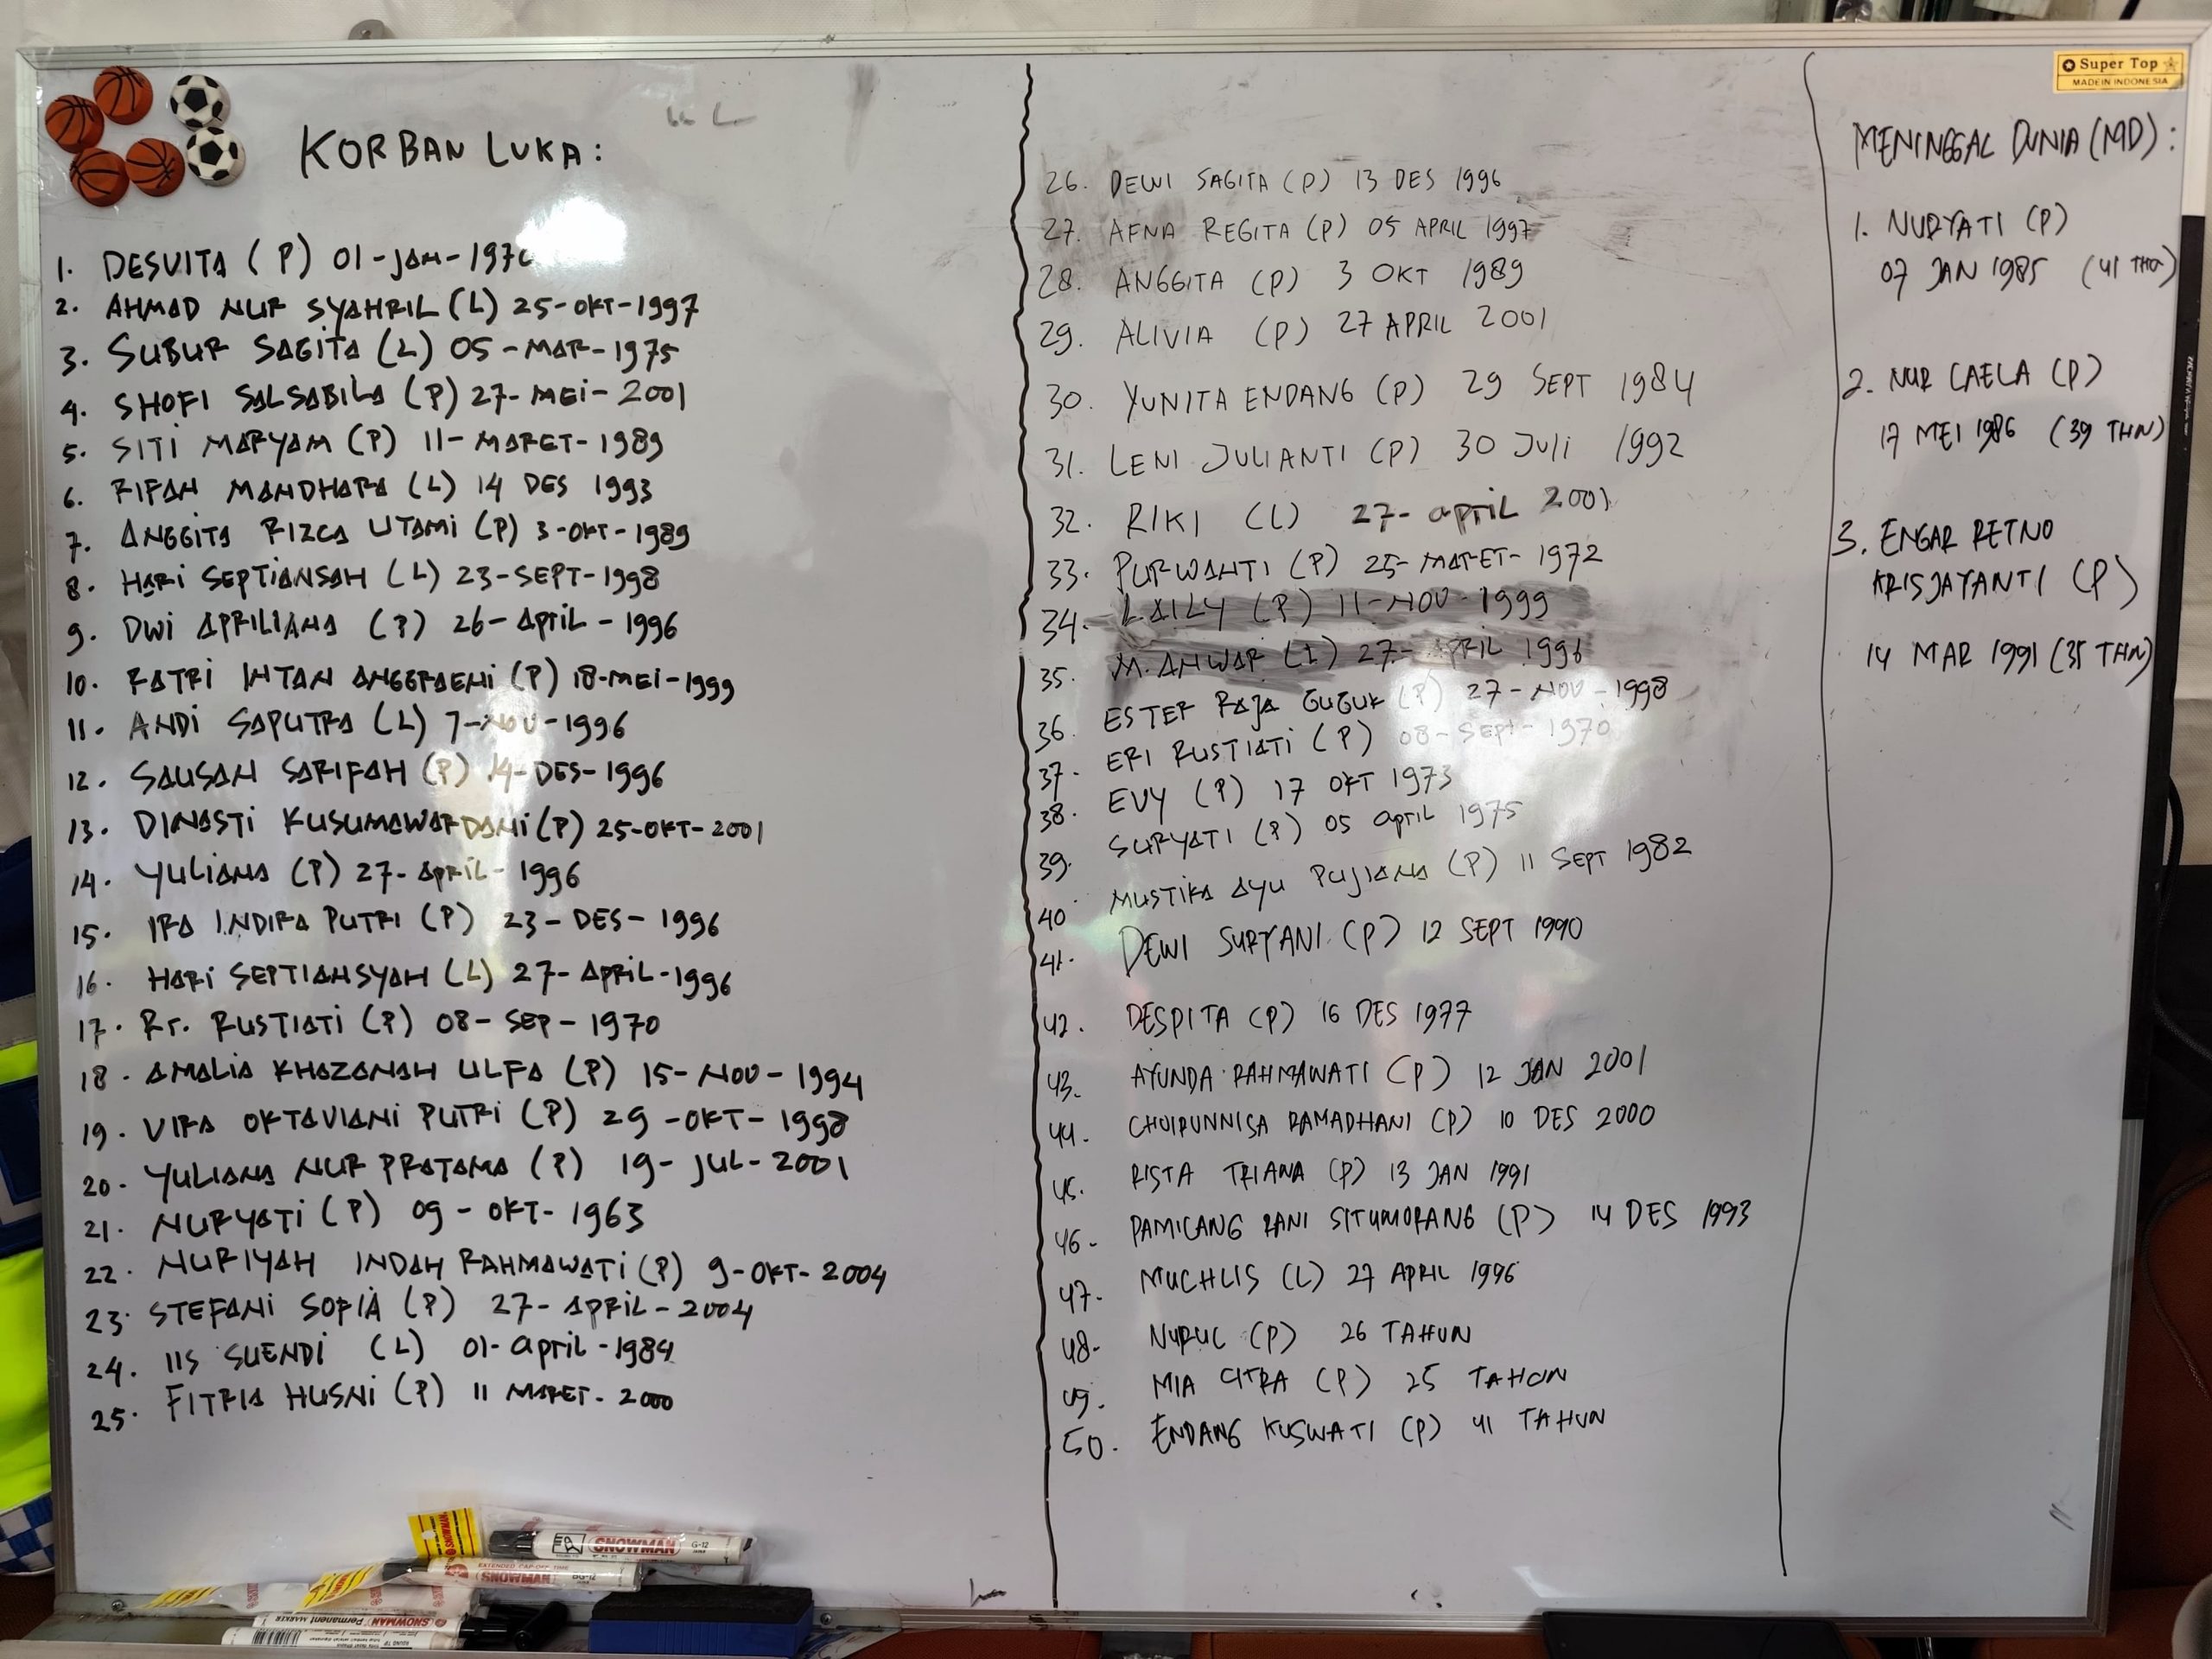 KORBAN LUKA:
1. DESVITA (P) 01-JAN-1970
2. AHMAD NUR SYAHRIL (L) 25-OKT-1997
3. SUBUR SAGITA (L) 05-MAR-1975
4. SHOFI SALSABILA (P) 27-MEI-2001
5. SITI MARYAM (P) 11-MARET-1989
6. RIFAN MANDHARA (L) 14 DES 1993
7. ANGGITA RIZCA UTAMI (P) 3-OKT-1989
8. HARI SEPTIANSAH (L) 23-SEPT-1998
9. DWI APRILIANA (P) 26-APRIL-1996
10. RATRI INTAN ANGGRAENI (P) 18-MEI-1999
11. ANDI SAPUTRA (L) 7-NOV-1996
12. SAUSAN SARIFAH (P) 14-DES-1996
13. DINASTI KUSUMAWARDANI (P) 25-OKT-2001
14. YULIANA (P) 27-APRIL-1996
15. IRA INDIRA PUTRI (P) 23-DES-1996
16. HARI SEPTIANSYAH (L) 27-APRIL-1996
17. Rr. RUSTIATI (P) 08-SEP-1970
18. AMALIA KHAZANAH ULFA (P) 15-NOV-1994
19. VIRA OKTAVIANI PUTRI (P) 29-OKT-1998
20. YULIANA NUR PRATAMA (P) 19-JUL-2001
21. NURYATI (P) 09-OKT-1963
22. NURIYAH INDAH RAHMAWATI (P) 9-OKT-2004
23. STEFANI SOFIA (P) 27-APRIL-2004
24. IIS SUENDI (L) 01-APRIL-1984
25. FITRIA HUSNI (P) 11 MARET-2000
26. DEWI SAGITA (P) 13 DES 1996
27. AFNA REGITA (P) 05 APRIL 1997
28. ANGGITA (P) 3 OKT 1989
29. ALIVIA (P) 27 APRIL 2001
30. YUNITA ENDANG (P) 29 SEPT 1984
31. LENI JULIANTI (P) 30 JULI 1992
32. RIKI (L) 27-APRIL 2001
33. PURWANTI (P) 25-MARET-1972
34. LAILY (P) 11-NOV-1999
35. M. ANWAR (L) 27-APRIL 1996
36. ESTER RAJA GUGUK (P) 27-NOV-1998
37. ERI RUSTIATI (P) 08-SEPT-1970
38. EVY (P) 17 OKT 1973
39. SURYATI (P) 05 APRIL 1975
40 MUSTIKA AYU PUJIANA (P) 11 SEPT 1982
41. DEWI SURYANI (P) 12 SEPT 1990
42. DESPITA (P) 16 DES 1977
43. AYUNDA RAHMAWATI (P) 12 JAN 2001
44. CHOIRUNNISA RAMADHANI (P) 10 DES 2000
45. RISTA TRIANA (P) 13 JAN 1991
46- PAMILANG RANI SITUMORANG (P) 14 DES 1993
47. MUCHLIS (L) 27 APRIL 1996
48- NURUL (P) 26 TAHUN
49. MIA CITRA (P) 25 TAHUN
50. ENDANG KUSWATI (P) 41 TAHUN
MENINGGAL DUNIA (MD):
1. NURYATI (P)
07 JAN 1985 (41 THN)
2. NUR LAELA (P)
17 MEI 1986 (39 THN)
3. ENGAR RETNO
KRISJAYANTI (P)
14 MAR 1991 (35 THN)
Super Top
MADE IN INDONESIA
SNOWMAN G-12
EXTENDED CAP-OFF TIME
SNOWMAN
SNOWMAN
Permanent MARKER